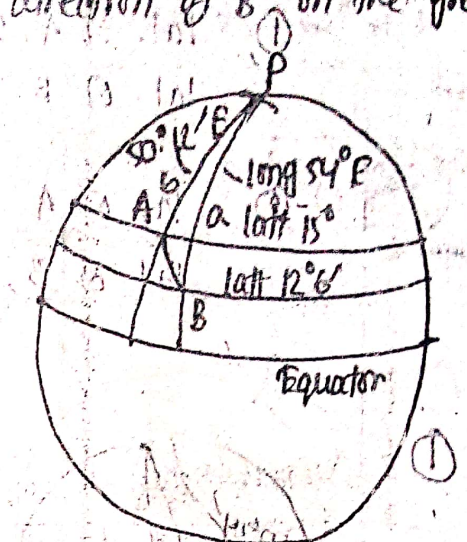 direction of B on the
①
P
50° 12' E
long 54° E
b
A
a latt 15°
latt 12° 6'
B
Equator
①